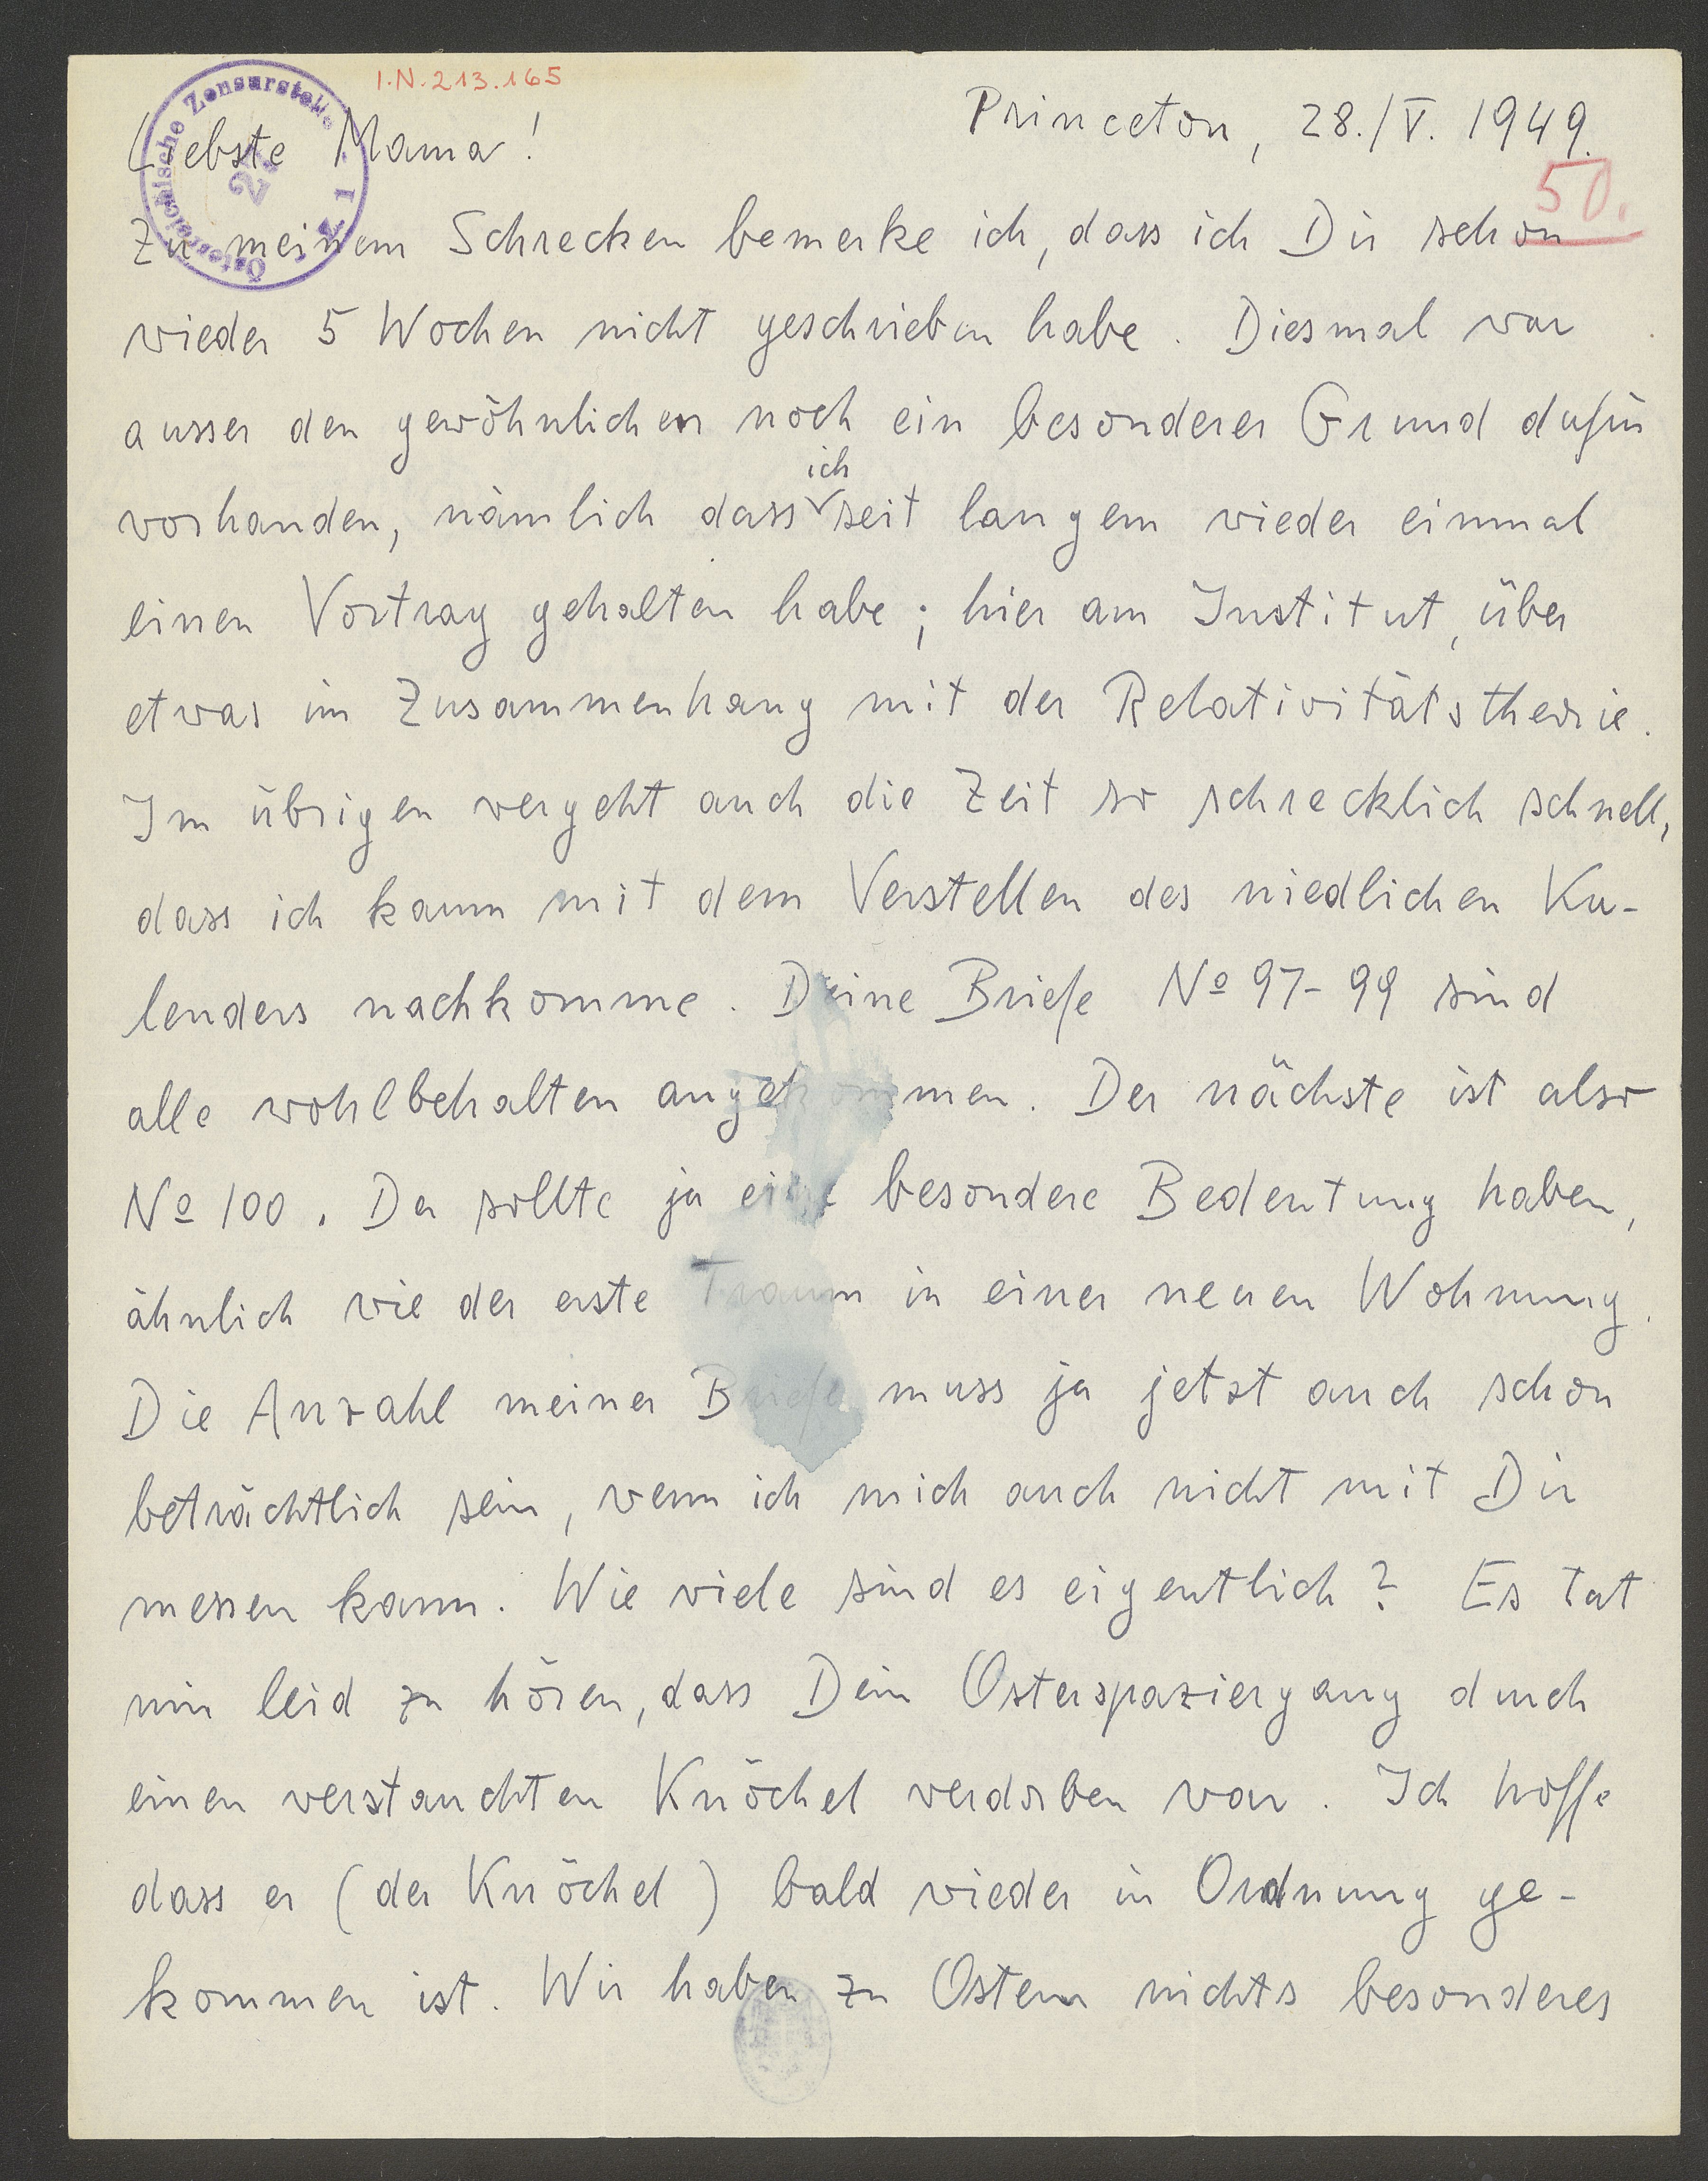 I.N. 213.165
Österreichische Zensurstelle
Princeton, 28./V. 1949.
Liebste Mama!
50.
Zu meinem Schrecken bemerke ich, dass ich Dir schon
wieder 5 Wochen nicht geschrieben habe. Diesmal war
ausser den gewöhnlichen noch ein besonderer Grund dafür
ich
vorhanden, nämlich dass seit langem wieder einmal
einen Vortrag gehalten habe; hier am Institut, über
etwas im Zusammenhang mit der Relativitätstheorie.
Im übrigen vergeht auch die Zeit so schrecklich schnell,
dass ich kaum mit dem Verstellen des niedlichen Ka-
lenders nachkomme. Deine Briefe № 97-99 sind
alle wohlbehalten angekommen. Der nächste ist also
№ 100. Der sollte ja eine besondere Bedeutung haben,
ähnlich wie der erste Traum in einer neuen Wohnung.
Die Anzahl meiner Briefe muss ja jetzt auch schon
beträchtlich sein, wenn ich mich auch nicht mit Dir
messen kann. Wie viele sind es eigentlich? Es tat
mir leid zu hören, dass Dein Osterspaziergang durch
einen verstauchten Knöchel verdorben war. Ich hoffe
dass er (der Knöchel) bald wieder in Ordnung ge-
kommen ist. Wir haben zu Ostern nichts besonderes